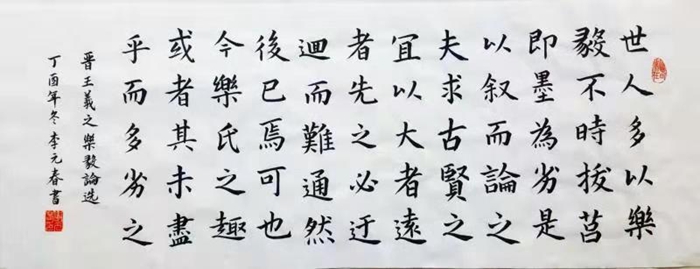 世人多以樂
毅不時拔莒
即墨為劣是
以叙而論之
夫求古賢之
宜以大者遠
者先之必迂
迴而難通然
後已焉可也
今樂氏之趣
或者其未盡
乎而多劣之
晉王羲之樂毅論选
丁酉年冬李元春書